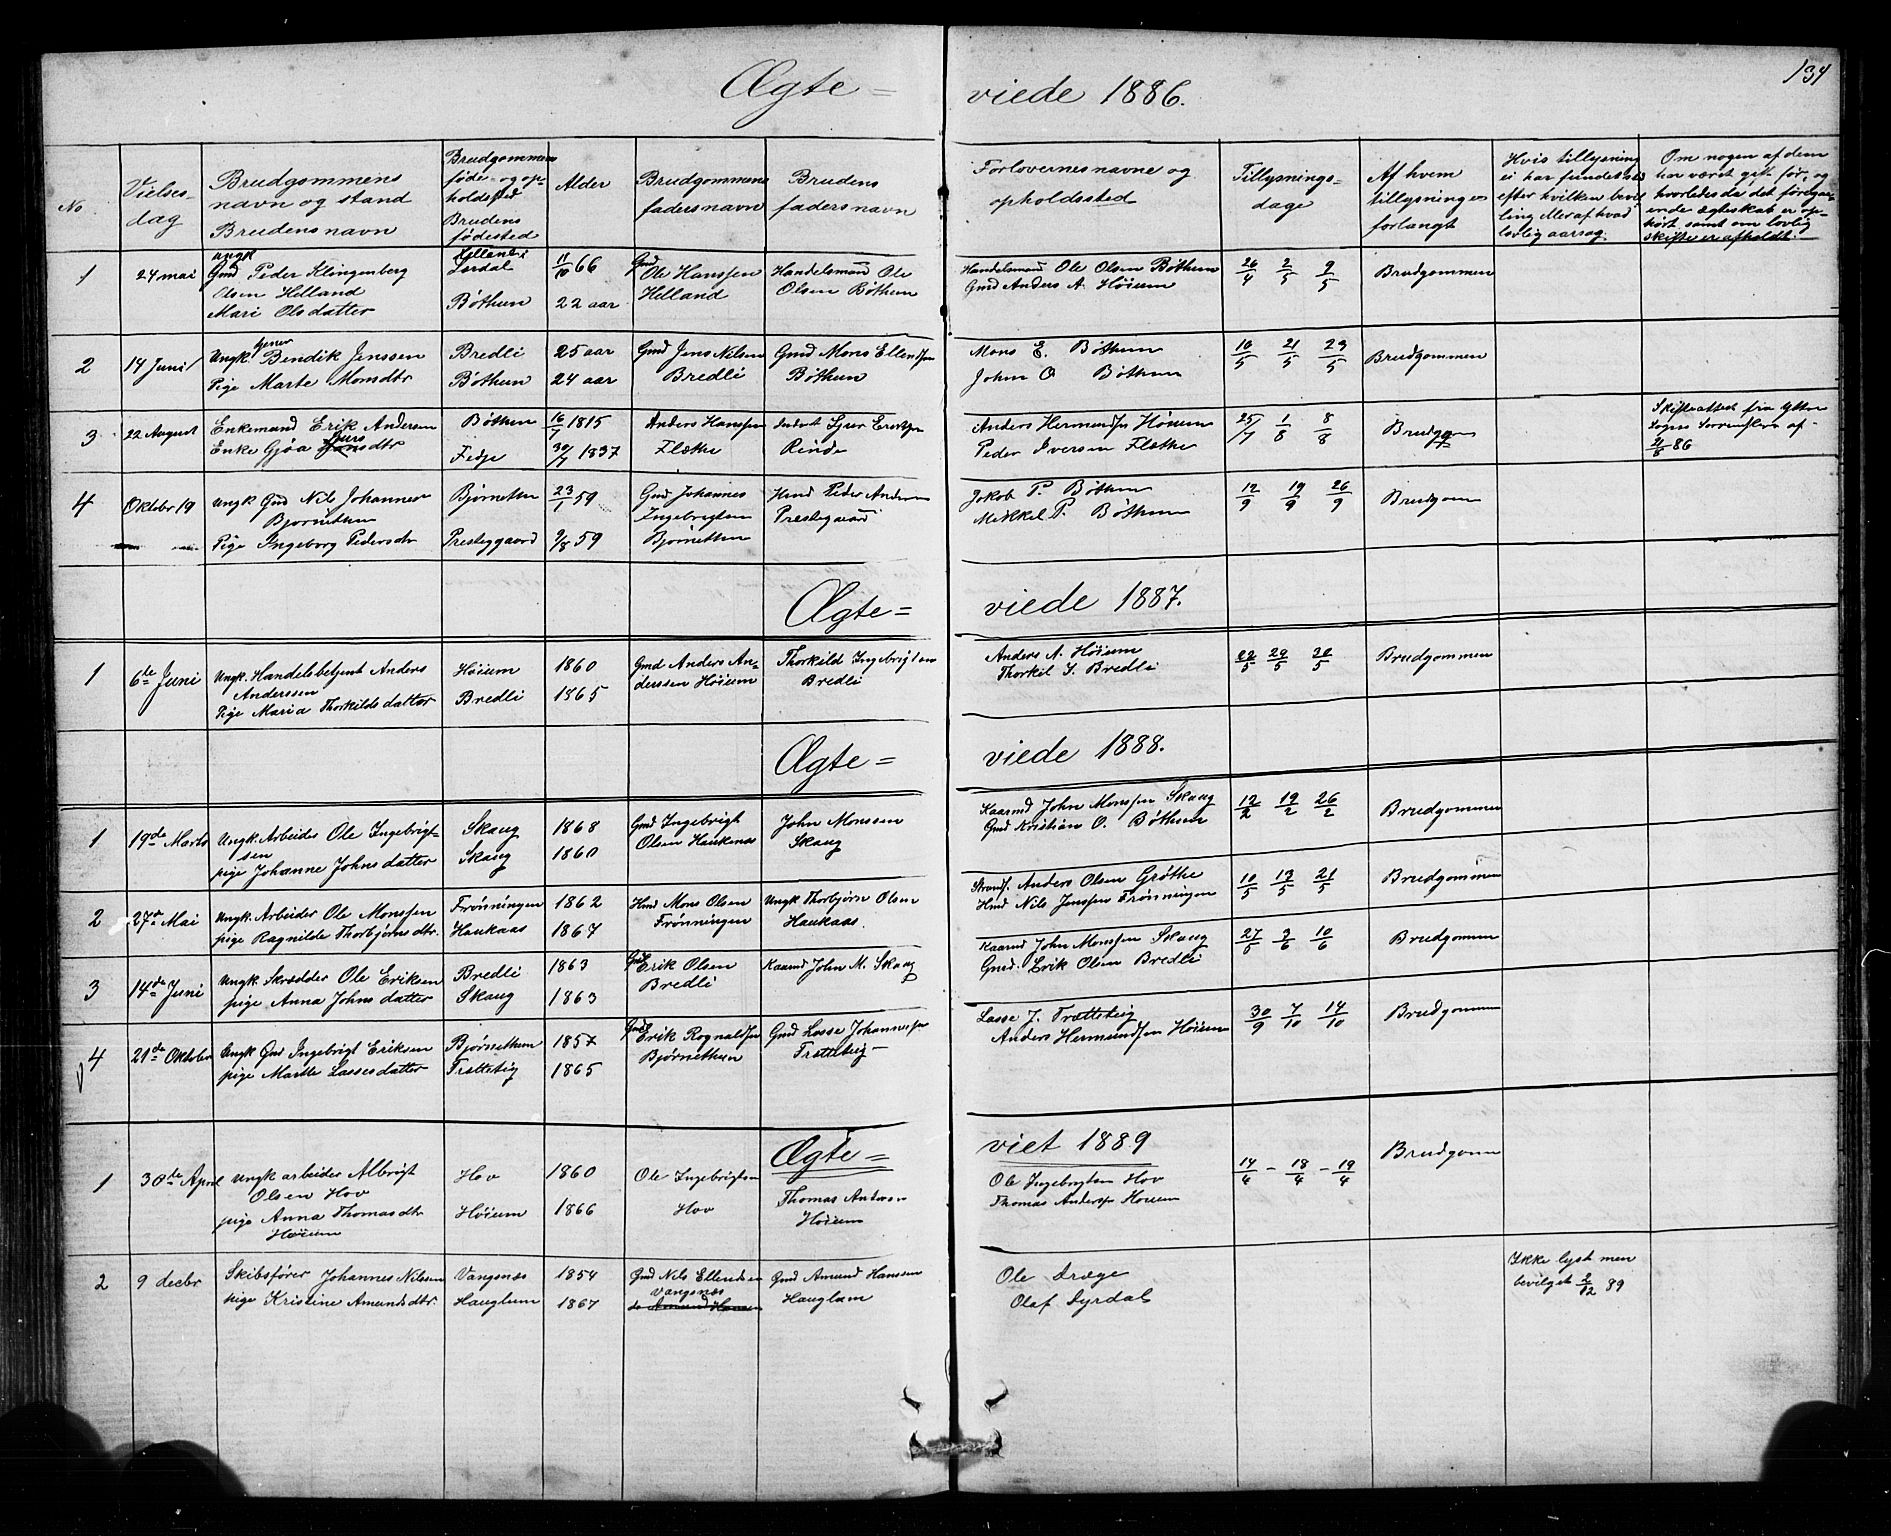 134
Ægte = viede 1886.
No
Vielses-
dag
Brudgommens
navn og stand
Brudens navn
Brudgommens
føde- og op-
holdssted
Brudens
fødested
Alder
Brudgommens
fadersnavn
Brudens
fadersnavn
Forlovernes navne og
opholdssted
Tillysnings-
dage
Af hvem
tillysningen
forlangt
Hvis tillysning
ei har fundet sted
efter hvilken bevil
ling eller af hvad
lovlig aarsag.
Om nogen af dem
har været gift før, og
hvorledes da det foregaa-
ende ægteskab er op-
hørt, samt om lovlig
skifte er afholdt.
1
24 mai
ungk
Gmd Peder Klingenberg
Olsen Helland
Mari Olsdatter
Lerdal
Bøthun
11/10 66
22 aar
Gmd
Ole Hanssen
Helland
Handelsmand Ole
Olsen Bøthun
Handelsmand Ole Olsen Bøthun
Gmd Anders A. Høium
26/4 2/5 9/5
Brudgommen
2
14 Juni
Ungk Bendik Jenssen
Pige Marte Monsdtr
Bredli
Bøthun
25 aar
24 aar
Gmd Jens Nilsen
Bredli
Gmd Mons Ellendsen
Bøthun
Mons E. Bøthun
John O Bøthun
16/5 21/5 23/5
Brudgommen
3
22 August
Enkemand Erik Andersen
Enke Gjøa Sjursdtr
Bøthun
Fedje
16/7 1815
30/7 1837
Anders Hanssen
Flæthe
Sjur Eriksen
Rinde
Anders Hermundsen Høium
Peder Iversen Flæthe
25/7 1/8 8/8
Brudgom
Skifteattest fra Ytre
Sogns Sorenskriver af
21/8 86
4
Oktober 19
Ungk Gmd Nils Johannesen
Bjørnethun
Pige Ingeborg Pedersdtr
Bjørnethun
Presteggaard
23/1 59
9/8 59
Gmd Johannes
Ingebrigtsen
Bjørnethun
Hmd Peder Andersen
Prestegaard
Jakob P. Bøthun
Mikkel P. Bøthun
12/9 19/9 26/9
Brudgom
Ægte = viede 1887.
1
6te Juni
Ungk. Handelsbetjent Anders
Anderssen
Pige Maria Thorkildsdatter
Høium
Bredli
1860
1865
Gmd Anders An-
derssen Høium
Thorkild Ingebrigtsen
Bredli
Anders A. Høium
Thorkil I. Bredli
22/5 29/5 30/5
Brudgommen
Ægte = viede 1888.
1
19de Marts
Ungk. Arbeider Ole Ingebrigt-
sen
pige Johanne Johnsdatter
Skaug
Skaug
1868
1860
Gmd Ingebrigt
Olsen Haukenæs
John Monssen
Skaug
Kaarmd John Monssen Skaug
Gmd Kristian O. Bøthun
12/2 19/2 26/2
Brudgommen
2
27de Mai
Ungk. Arbeider Ole Monssen
pige Ragnilde Thorbjørnsdtr.
Frønningen
Haukaas
1862
1864
Hmd Mons Olsen
Frønningen
Ungk Thorbjørn Olsen
Haukaas.
Strands. Anders Olsen Grøthe
Hmd Nils Jenssen Frønningen
10/5 13/5 21/5
Brudgommen
3
14de Juni
Ungk. Skrædder Ole Eriksen
pige Anna Johnsdatter
Bredli
Skaug
1863
1863
Gmd
Erik Olsen
Bredli
Kaarmd John M. Skaug
Kaarmd John Monssen Skaug
Gmd. Erik Olsen Bredli
27/5 3/6 10/6
Brudgommen
4
21de Oktober
Ungk Gmd Ingebrigt Eriksen
pige Marthe Lassesdatter
Bjørnethun
Trætteteig
1857
1865
Gmd
Erik Rognaldsen
Bjørnethun
Gmd Lasse Johannessen
Trætteteig
Lasse J. Trætteteig
Anders Hermundsen Høium
30/9 7/10 14/10
Brudgommen
Ægte = viet 1889
1
30te April
Ungk arbeider Albrigt
Olsen Hov
pige Anna Thomasdtr
Høium
Hov
Høium
1860
1866
Ole Ingebrigtsen
Hov
Thomas Andersen
Høium
Ole Ingebrigtsen Hov
Thomas Andersen Høium
14/4 - 18/4 - 19/4
Brudgom
2
9 decbr
Skibsfører Johannes Nilssen
pige Kristine Amundsdtr.
Vangsnæs
Hauglum
1854
1867
Gmd Nils Ellendsen
Vangsnæs
do Amund Hansen
Gmd Amund Hanssen
Hauglum
Ole Dræge
Olaf Dyrdal
Ikke lyst men
bevilget 2/12 89